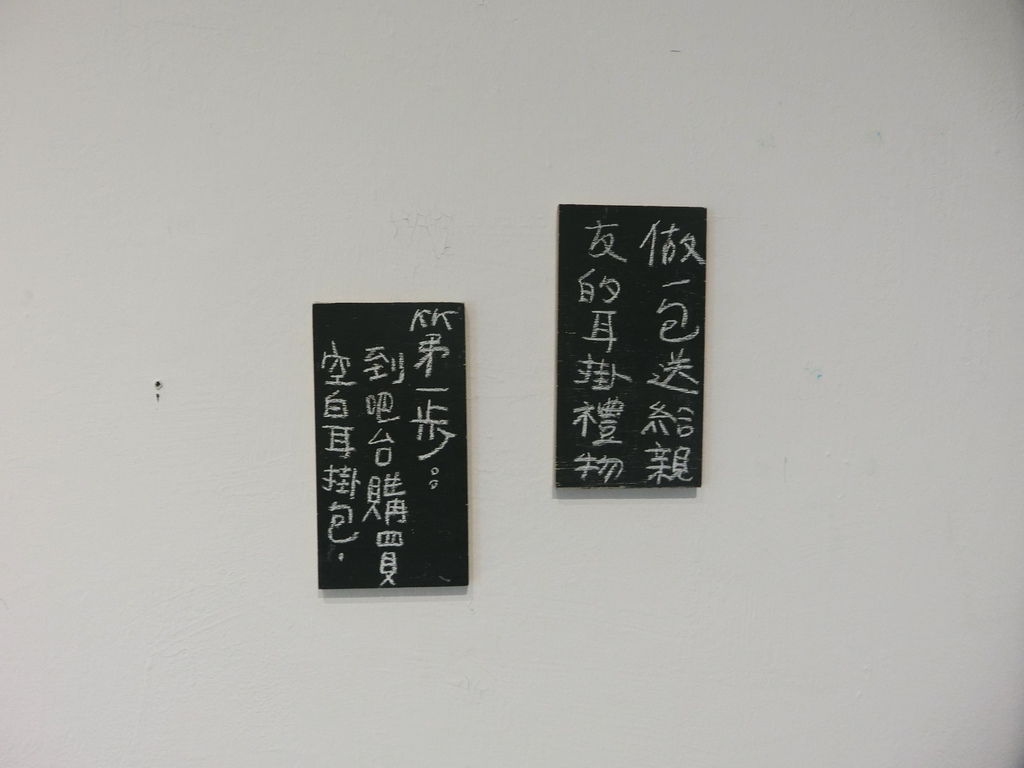 做一包送給親
友的耳掛禮物
第一步:
到吧台購買
空白耳掛包.